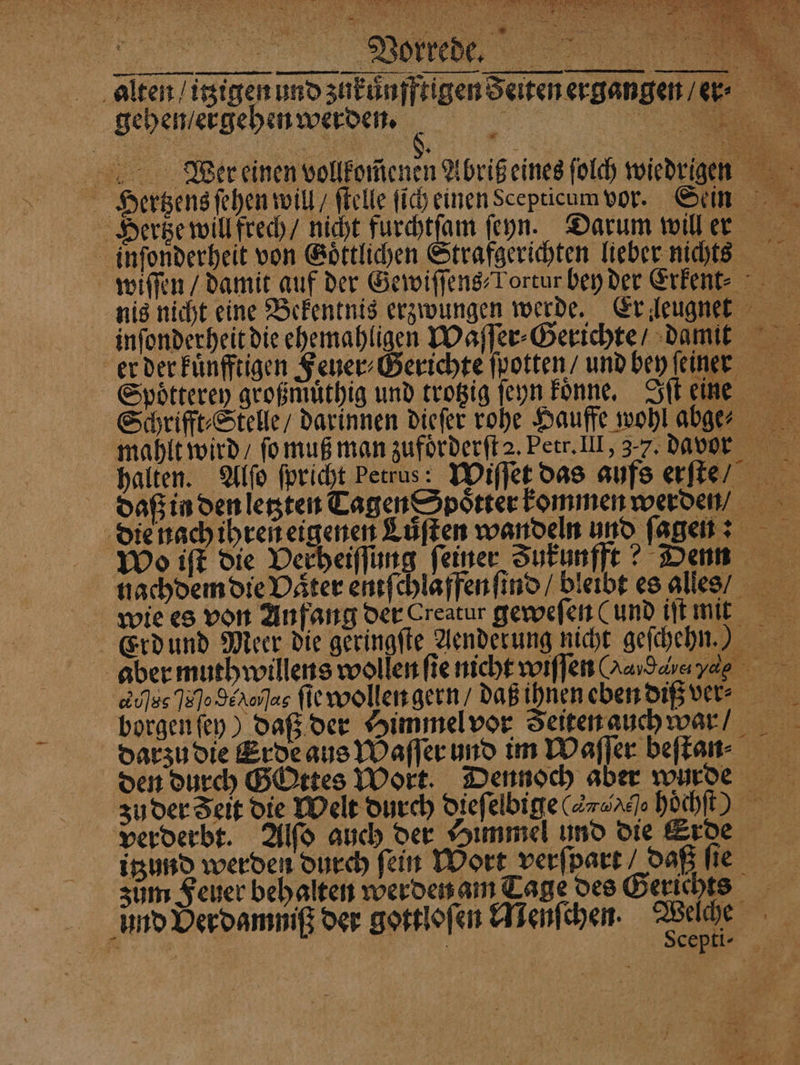 Vorrede.
alten / itzigen und zukuͤnfftigen Zeiten ergangen / er-
gehen/ergehen werden.
§.
Wer einen vollkom̃enen Abriß eines ſolch wiedrigen
Hertzens ſehen will / ſtelle ſich einen Scepticum vor. Sein
Hertze will frech / nicht furchtſam ſeyn. Darum will er
inſonderheit von Goͤttlichen Strafgerichten lieber nichts
wiſſen / damit auf der Gewiſſens-Tortur bey der Erkent-
nis nicht eine Bekentnis erzwungen werde. Er leugnet
inſonderheit die ehemahligen Waſſer-Gerichte / damit
er der kuͤnfftigen Feuer-Gerichte ſpotten / und bey ſeiner
Spoͤtterey großmuͤthig und trotzig ſeyn koͤnne. Iſt eine
Schrifft-Stelle / darinnen dieſer rohe Hauffe wohl abge-
mahlt wird / ſo muß man zufoͤrderſt 2. Petr. III, 3-7. davor
halten. Alſo ſpricht Petrus: Wiſſet das aufs erſte /
daß in den letzten Tagen Spoͤtter kommen werden /
die nach ihren eigenen Luͤſten wandeln und ſagen :
Wo iſt die Verheiſſung ſeiner Zukunfft ? Denn
nachdem die Vaͤter entſchlaffen ſind / bleibt es alles /
wie es von Anfang der Creatur geweſen ( und iſt mit
Erd und Meer die geringſte Aenderung nicht geſchehn.)
aber muthwillens wollen ſie nicht wiſſen (λανθάνει γὰρ
ἀυτοὺς τοῦτο θέλοντας ſie wollen gern / daß ihnen eben diß ver-
borgen ſey ) daß der Himmel vor Zeiten auch war /
darzu die Erde aus Waſſer und im Waſſer beſtan-
den durch GOttes Wort. Dennoch aber wurde
zu der Zeit die Welt durch dieſelbige (ἀπώλετο hoͤchſt)
verderbt. Alſo auch der Himmel und die Erde
itzund werden durch ſein Wort verſpart / daß ſie
zum Feuer behalten werden am Tage des Gerichts
und Verdamniß der gottloſen Menſchen. Welche
Scepti-